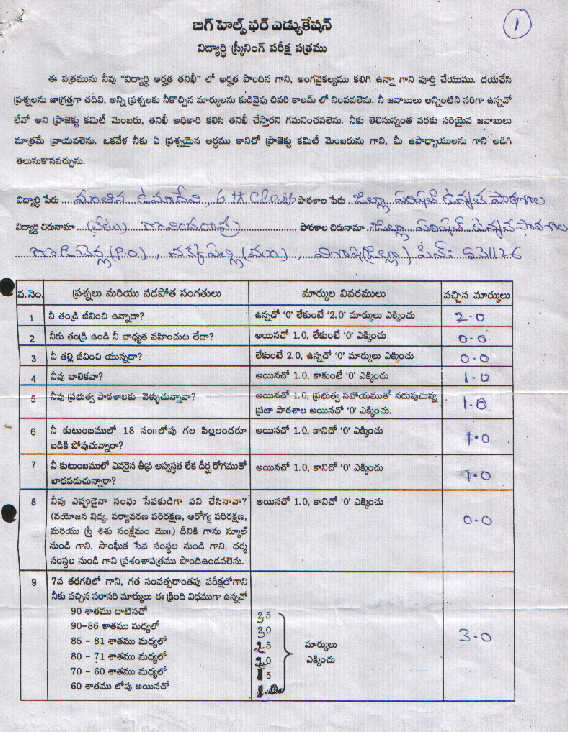 1
బిగ్ హెల్ప్ ఫర్ ఎడ్యుకేషన్
విద్యార్థి స్క్రీనింగ్ పరీక్ష పత్రము
ఈ పత్రమును నీవు "విద్యార్థి అర్హత తనిఖీ" లో అర్హత పొందిన గాని, అంగవైకల్యము కలిగి ఉన్నా గాని పూర్తి చేయుము. దయచేసి
ప్రశ్నలను జాగ్రత్తగా చదివి, అన్ని ప్రశ్నలకు నీకొచ్చిన మార్కులను కుడివైపు చివరి కాలమ్ లో నింపవలెను. నీ జవాబులు అన్నింటిని సరిగా ఉన్నవో
లేవో అని ప్రాజెక్టు కమిటీ మెంబరు, తనిఖీ అధికారి కలిసి తనిఖీ చేస్తారని గమనించవలెను. నీకు తెలిసినంత వరకు సరియైన జవాబులు
మాత్రమే వ్రాయవలెను. ఒకవేళ నీకు ఏ ప్రశ్నయైన అర్థము కానిచో ప్రాజెక్టు కమిటీ మెంబరును గాని, మీ ఉపాధ్యాయులను గాని అడిగి
తెలుసుకొనవచ్చును.
విద్యార్థి పేరు ... ఉమాదేవి ... పాఠశాల పేరు: జిల్లా పరిషత్ ఉన్నత పాఠశాల
విద్యార్థి చిరునామా ... పాఠశాల చిరునామా జిల్లా పరిషత్ ఉన్నత పాఠశాల
పిన్: 531126
ప.నెం. ప్రశ్నలు మరియు నడపోత సంగతులు మార్కుల వివరములు వచ్చిన మార్కులు
1 నీ తండ్రి జీవించి ఉన్నాడా? ఉన్నచో '0' లేకుంటే '2.0' మార్కులు ఎక్కించు 2-0
2 నీకు తండ్రి ఉండి నీ బాధ్యత వహించుట లేదా? అయినచో 1.0, లేకుంటే '0' ఎక్కించు 0-0
3 నీ తల్లి జీవించి యున్నదా? లేకుంటే 2.0, ఉన్నచో '0' మార్కులు ఎక్కించు 0-0
4 నీవు బాలికవా? అయినచో 1.0, కాకుంటే '0' ఎక్కించు 1-0
5 నీవు ప్రభుత్వ పాఠశాలకు వెళ్ళుచున్నావా? అయినచో 1.0, ప్రభుత్వ సహాయముతో నడుపుచున్న
ప్రైవేటు పాఠశాల అయినచో '0' ఎక్కించు. 1-0
6 నీ కుటుంబములో 18 సం॥లోపు గల పిల్లలందరూ
బడికి పోవుచున్నారా? అయినచో 1.0, కానిచో '0' ఎక్కించు 1-0
7 నీ కుటుంబములో ఎవరైన తీవ్ర అస్వస్థత లేక దీర్ఘ రోగముతో
బాధపడుచున్నారా? అయినచో 1.0, కానిచో '0' ఎక్కించు 1-0
8 నీవు ఎప్పుడైనా సంఘ సేవకుడిగా పని చేసినావా? అయినచో 1.0, కానిచో '0' ఎక్కించు
(వయోజన విద్య, పర్యావరణ పరిరక్షణ, ఆరోగ్య పరిరక్షణ,
మరియు స్త్రీ శిశు సంక్షేమం మొ॥) దీనికి గాను స్కూల్ 0-0
నుండి గాని, సాంఘిక సేవ సంస్థల నుండి గాని, ధర్మ
సంస్థల నుండి గాని ప్రశంసాపత్రము పొందిఉండవలెను.
9 7వ తరగతిలో గాని, గత సంవత్సరాంతపు పరీక్షలోగాని
నీకు వచ్చిన సరాసరి మార్కులు ఈ క్రింది విధముగా ఉన్నచో
90 శాతము దాటినచో 3.5
90-86 శాతము మధ్యలో 3.0
85 - 81 శాతము మధ్యలో 2.5 మార్కులు 3-0
80 - 71 శాతము మధ్యలో 2.0 ఎక్కించు
70 - 60 శాతము మధ్యలో 1.5
60 శాతము లోపు అయినచో